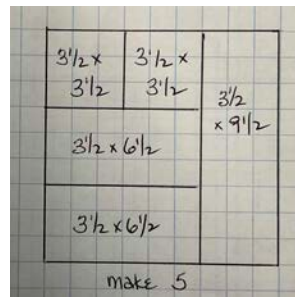 3 1/2 x
3 1/2
3 1/2 x
3 1/2
3 1/2
x 9 1/2
3 1/2 x 6 1/2
3 1/2 x 6 1/2
make 5